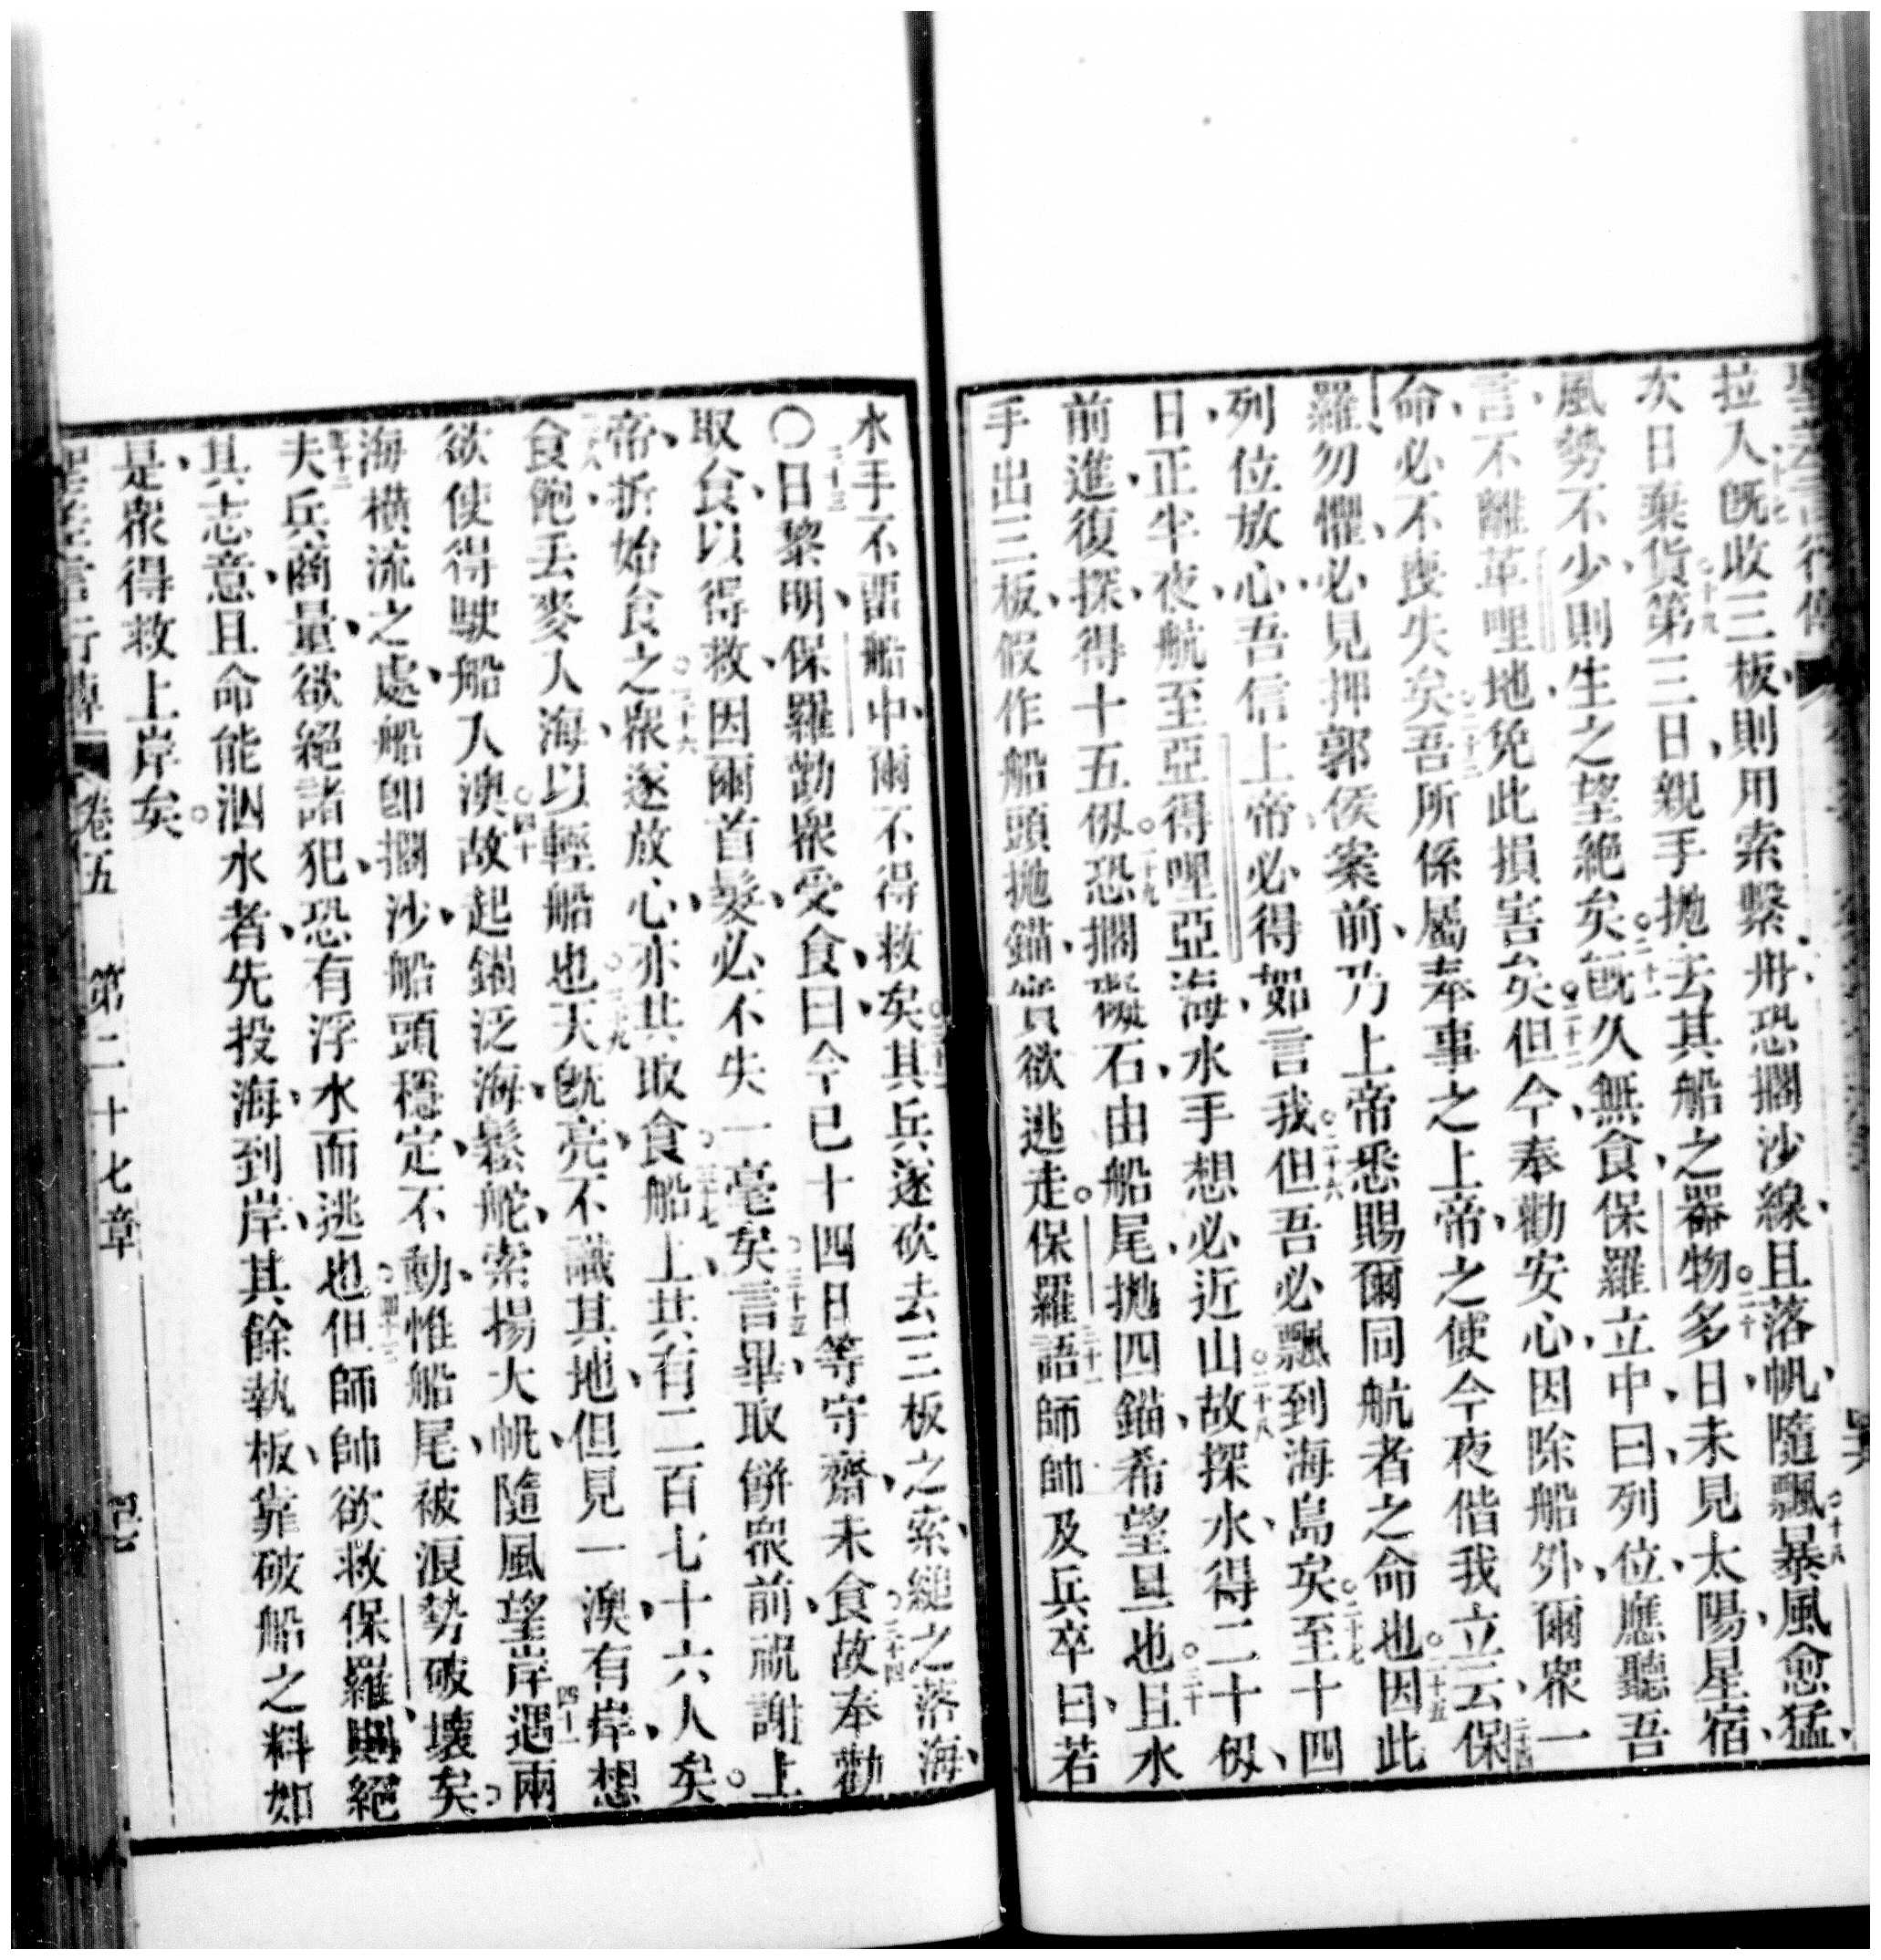 拉入既收三板、則用索繫舟、恐擱沙線、且落帆、隨飄。十八暴風愈猛、
次日棄貨。十九第三日、親手拋去其船之器物。二十多日、未見太陽、星宿、
風勢不少、則生之望絕矣。二十一既久無食、保羅立中、曰、列位、應聽吾
言、不離革哩地、免此損害矣。二十二但今、奉勸安心、因除船外、爾眾一
命、必不喪失矣。二十三吾所係屬奉事之上帝、之使今夜偕我立云、二十四保
羅、勿懼、必見押郭侯案前、乃上帝悉賜爾同航者之命也。二十五因此
列位放心、吾信上帝、必得如言我。二十六但吾必飄到海島矣。二十七至十四
日、正半夜、航至亞得哩亞海、水手想必近山。二十八故探水、得二十仭、
前進、復探、得十五仭。二十九恐擱礙石、由船尾、拋四錨、希望旦也。三十且水
手出三板、假作船頭拋錨、實欲逃走。三十一保羅語師帥及兵卒曰、若
水手不畱船中、爾不得救矣。三十二其兵遂砍去三板之索、縋之落海、
〇三十三日黎明、保羅勸眾受食、曰、今已十四日等守齋、未食。三十四故奉勸
取食、以得救、因爾首髮、必不失一毫矣。三十五言畢、取餅眾前、祝謝上
帝、折始食之。三十六眾遂放心、亦共取食。三十七船上、共有二百七十六人矣。
三十八食飽、丟麥入海、以輕船也。三十九天既亮、不識其地、但見一澳、有岸、想
欲使得駛船入澳。四十故起錨泛海、鬆舵、索揚大帆、隨風望岸。四十一遇兩
海橫流之處、船卽擱沙、船頭穩定、不動、惟船尾、被浪勢破壞矣。
四十二夫兵商量、欲絕諸犯、恐有浮水而逃也。四十三但師帥欲救保羅、則絕
其志意、且命能泅水者、先投海、到岸、其餘執板、靠破船之料、如
是、眾得救上岸矣。
聖差言行傳 卷五 第二十七章